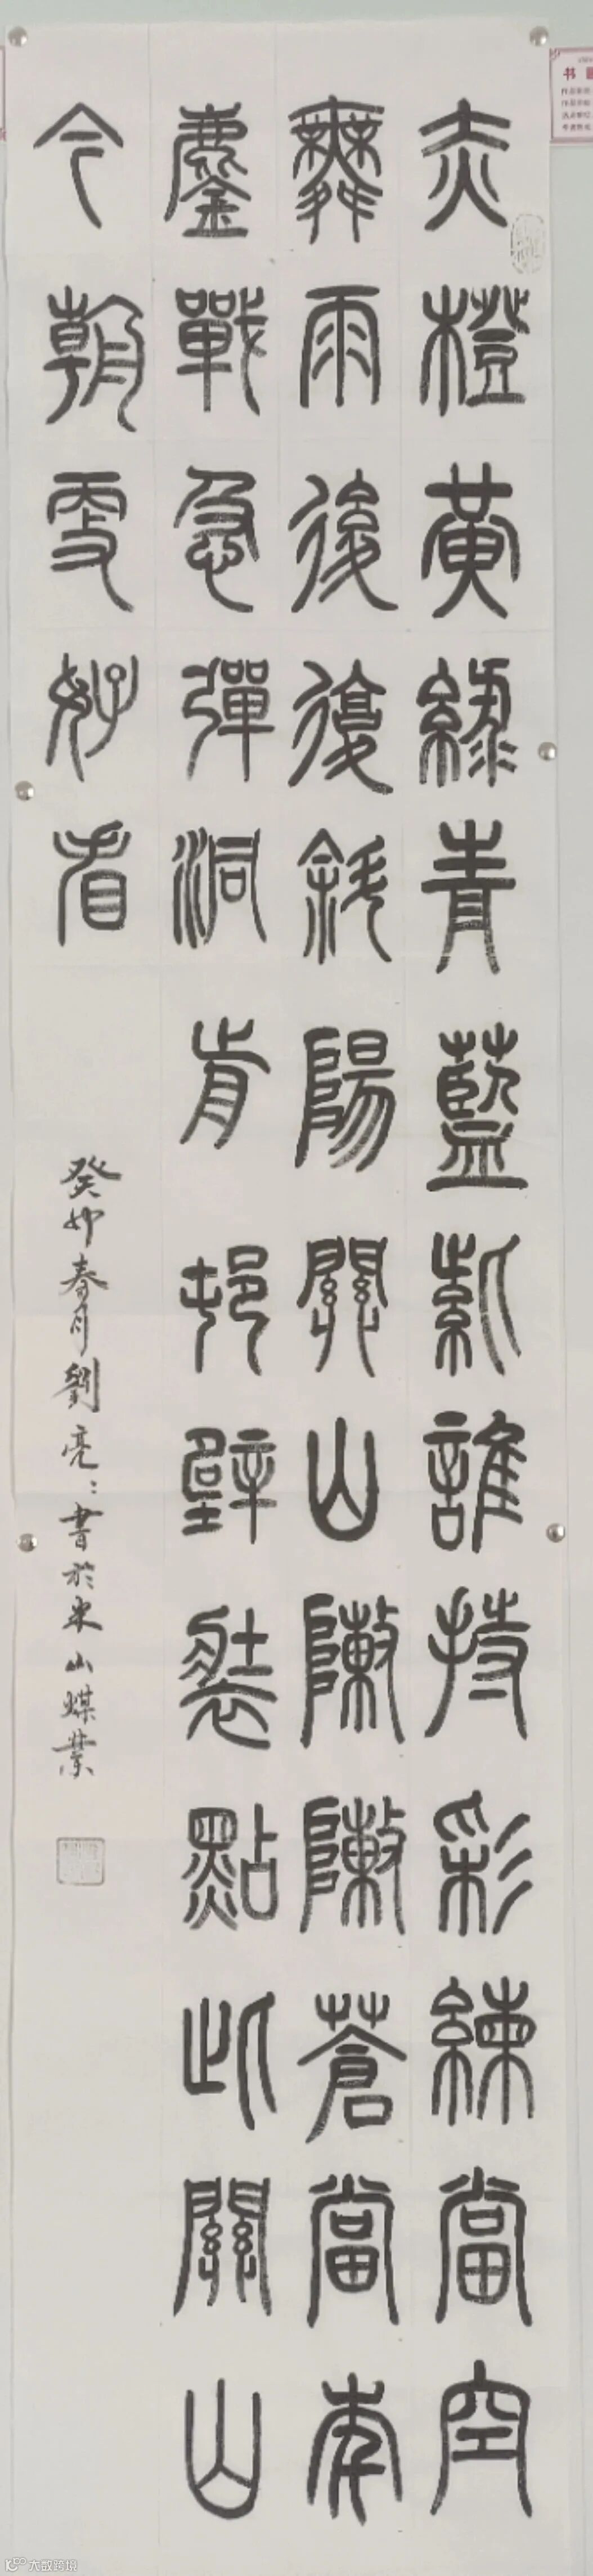 赤橙黃綠青藍紫誰持彩練當空
舞雨後復斜陽關山陣陣蒼當年
鏖戰急彈洞前邨壁裝點此關山
今朝更好看
癸卯春月劉亮〻書於東山煤業
书
大数跨境